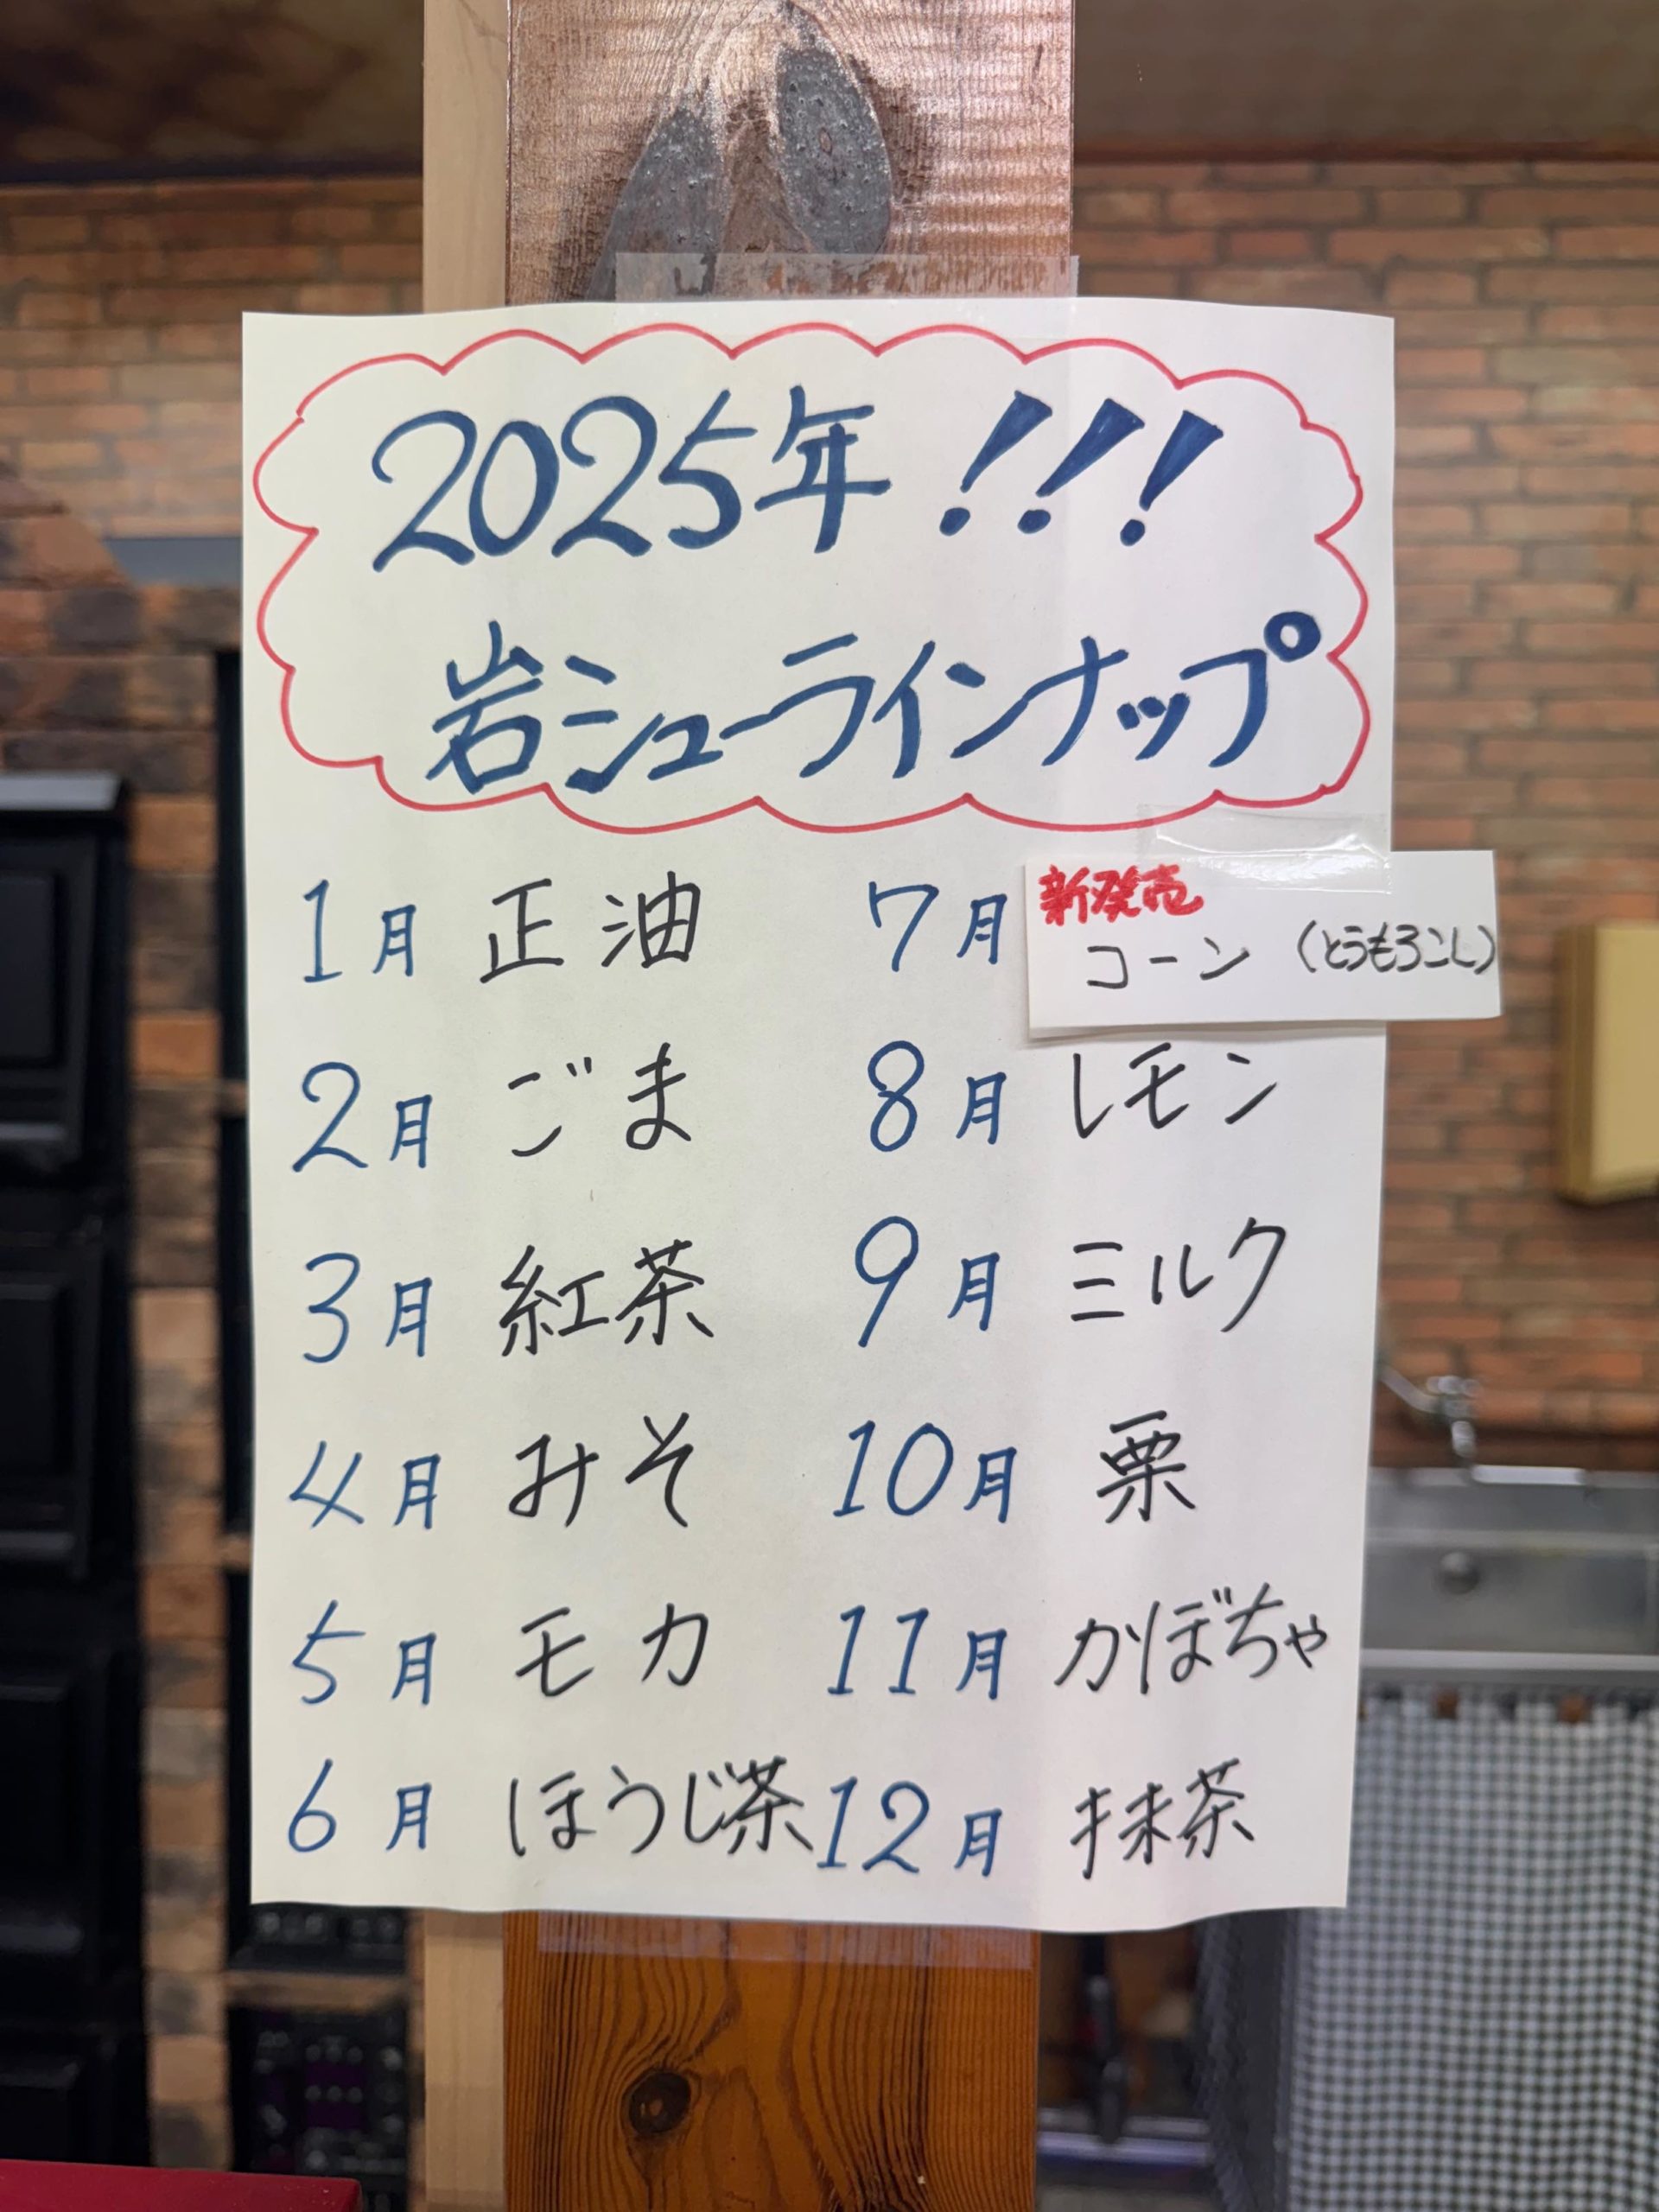 2025年!!!
岩シューラインナップ
1月 正油
2月 ごま
3月 紅茶
4月 みそ
5月 モカ
6月 ほうじ茶
7月 新発売 コーン (とうもろこし)
8月 レモン
9月 ミルク
10月 栗
11月 かぼちゃ
12月 抹茶